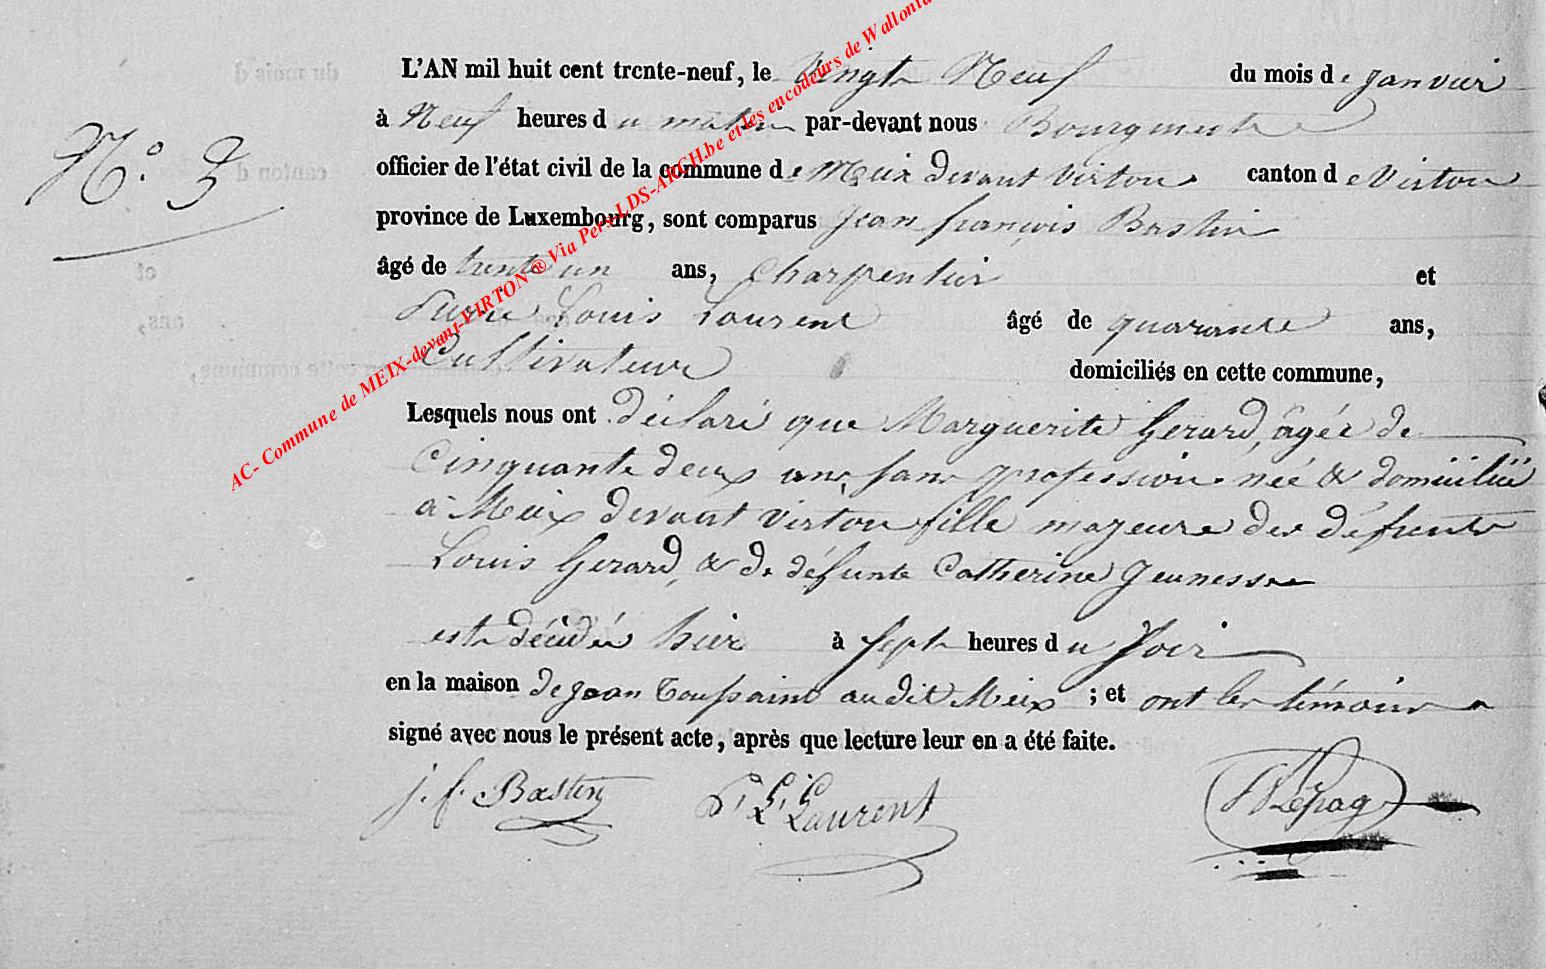 L'AN mil huit cent trente-neuf, le Vingt Neuf du mois de Janvier
N.° 3
à Neuf heures du matin par-devant nous Bourgmestre
officier de l'état civil de la commune de Meix devant Virton canton de Virton
province de Luxembourg, sont comparus Jean françois Bastin
âgé de trente un ans, Charpentier et
Pierre Louis Laurent âgé de quarante ans,
Cultivateur domiciliés en cette commune,
Lesquels nous ont déclaré que Marguerite Gerard, âgée de
Cinquante deux ans, sans profession née & domiciliée
à Meix devant Virton fille majeure des défunts
Louis Gerard, & de défunte Catherine Jeunesse
est décédée hier à Sept heures du Soir
en la maison de Jean Toussaint audit Meix ; et ont les témoins
signé avec nous le présent acte, après que lecture leur en a été faite.
j. f. Bastin P. L. Laurent Lepage
AC- Commune de MEIX-devant-VIRTON ® Via Pers.LDS-ARCH.be et les encodeurs de Wallonie